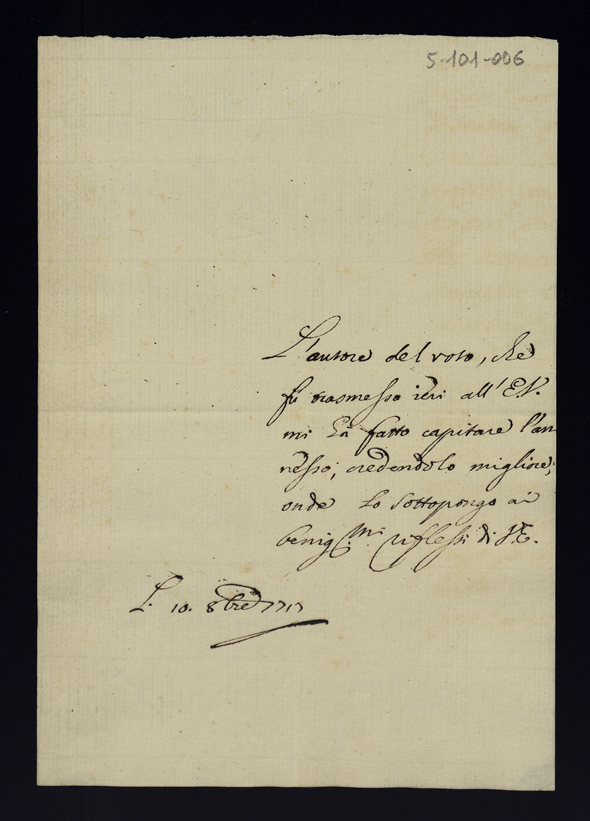 5-101-006
L'autore del voto, che
fù trasmesso ieri all'E.V.
mi hà fatto capitare l'an
nesso, credendolo migliore;
onde lo sottopongo ai
benig.mi riflessi di V.E.
L. 10. 8bre